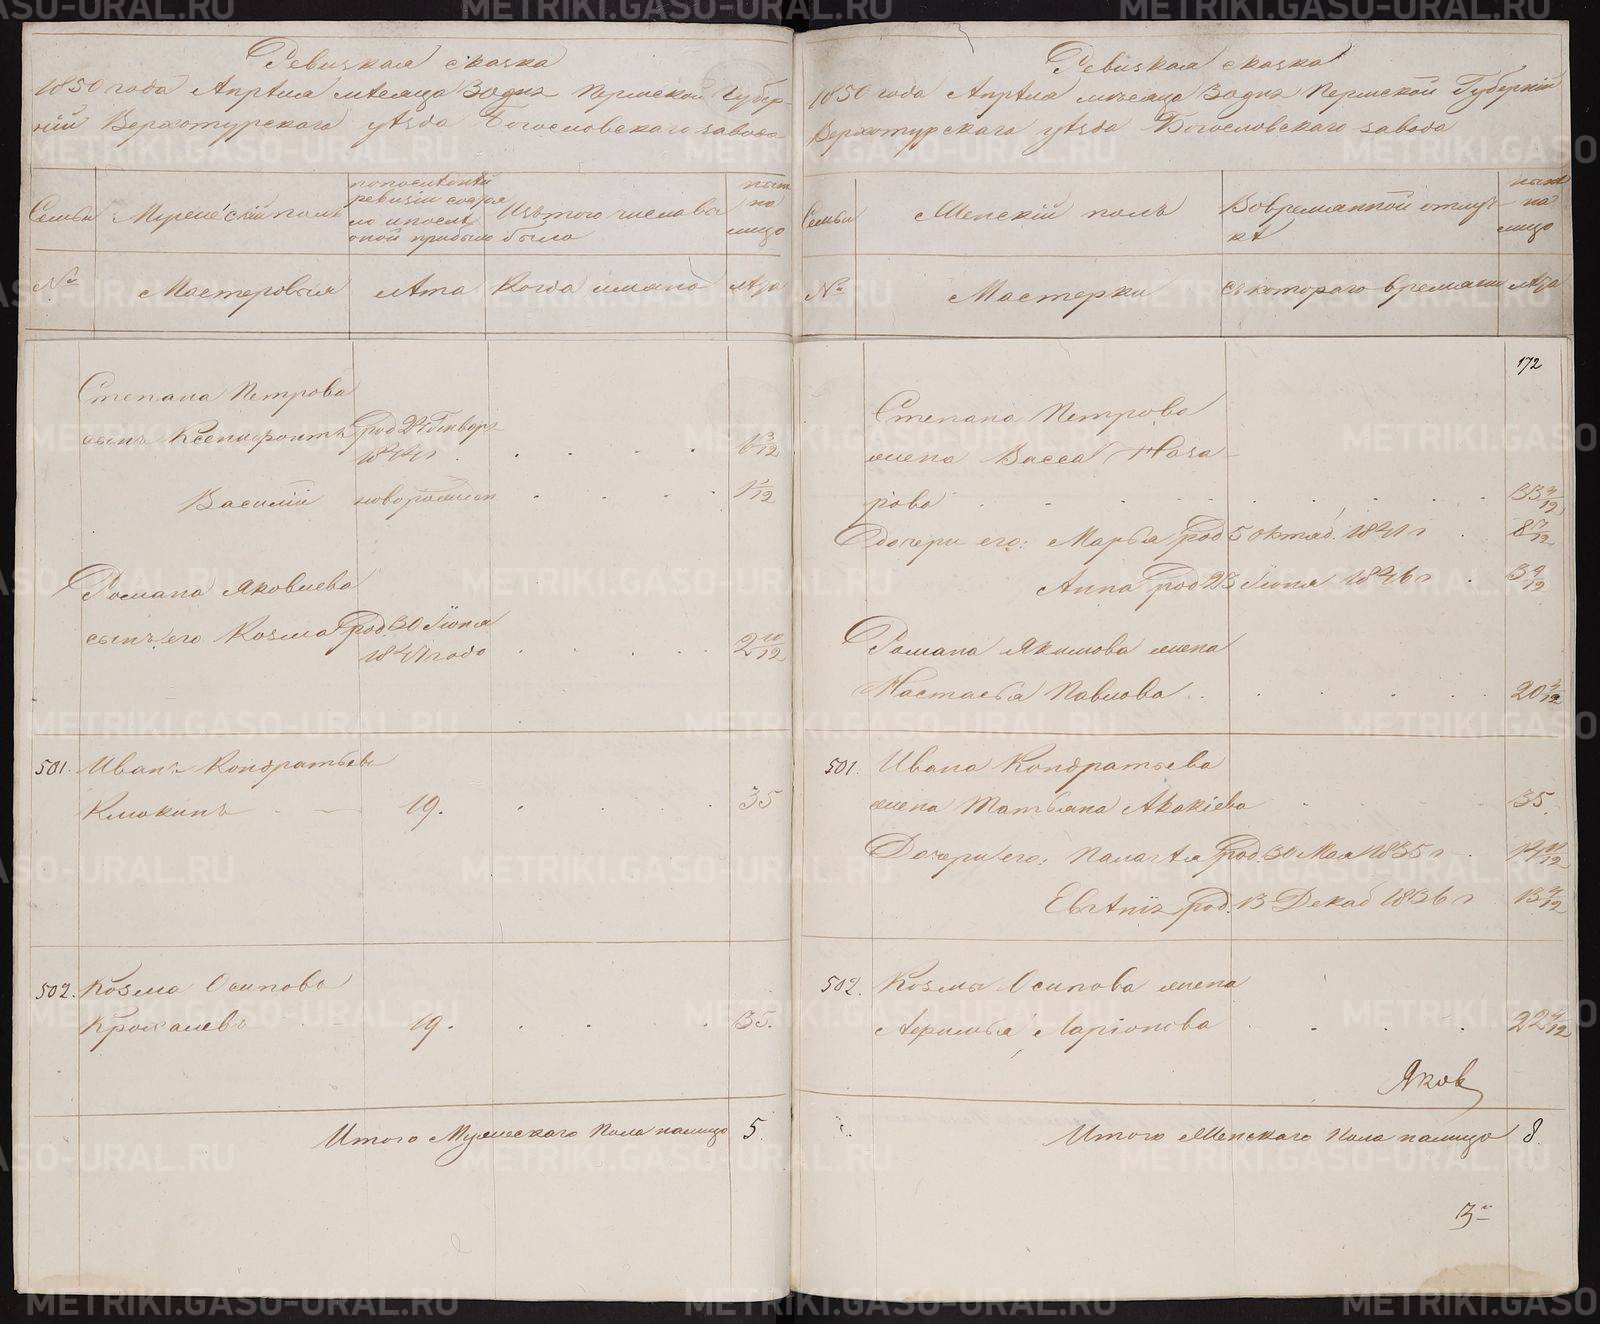 Ревизкая сказка
1850 года Апрѣля мѣсяца 30 дня Пермской Губер-
нiи Верхотурскаго уѣзда Богословскаго завода
Семьи
Мужескiй полъ
по последней
ревизiи состоя
ло и после
оной прибыло
Изъ того числа вы
было
ныне
на
лицо
№
Мастеровыя
Лѣта
Когда имяно
Лѣта
Степана Петрова
сынъ Ксенофонтъ род 24 Генвар
1844 г . . . . . 6 3/12
Василiй новорожден . . . .
Романа Яковлева
сынъ его Козма род. 30 Iюня
1847 года . . . . . 2 10/12
501. Иванъ Кондратьевъ
Клюкинъ 19. . . . 35
502. Козма Осиповъ
Крохалевъ 19. . . . 35.
Итого Мужескаго Пола налицо 5.
Ревизкая сказка
1850 года Апрѣля мѣсяца 30 дня Пермской Губернiи
Верхотурскаго уѣзда Богословскаго завода
Семьи
Женскiй полъ
Вовремянной отлуч-
кѣ
ныне
на
лицо
№
Мастерки
съ котораго времяни
Лѣта
172
Степана Петрова
жена Васса Наза-
рова . . . . . . 33 4/12
Дочери его: Марья род 5 октяб. 1841 г . 8 7/12
Анна род 23 Iюня 1846 г . 3 9/12
Романа Якимова жена
Настасья Павлова . . . . . 20 4/12
501. Ивана Кондратьева
жена Татьяна Акакiева . . . 35.
Дочери его: Палагѣя род. 30 Мая 1835 г . 14 11/12
Евгѣнiя род. 13 Декаб 1836 г 13 4/12
502. Козмы Осипова жена
Афимья Ларiонова . . . . 22 4/12
Яков
Итого Женскаго Пола налицо 8.
METRIKI.GASO-URAL.RU